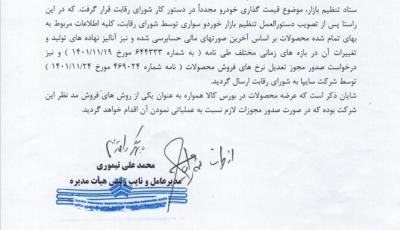 ستاد تنظیم بازار، موضوع قیمت گذاری خودرو مجدداً در دستور کار شورای رقابت قرار گرفت. که در این
راستا پس از تصویب دستورالعمل تنظیم بازار خودرو سواری توسط شورای رقابت، کلیه اطلاعات مربوط به
بهای تمام شده محصولات بر اساس آخرین صورتهای مالی حسابرسی شده و نیز آنالیز نهاده های تولید و
تغییرات آن در بازه های زمانی مختلف طی نامه ( به شماره ۶۴۴۳۳۳ مورخ ۱۴۰۱/۱۱/۱۹ ) و نیز
درخواست صدور مجوز تعدیل نرخ های فروش محصولات ( نامه شماره ۴۶۹۰۲۴ مورخ ۱۴۰۱/۱۱/۲۴ )
توسط شرکت سایپا به شورای رقابت ارسال گردید.
شایان ذکر است که عرضه محصولات در بورس کالا همواره به عنوان یکی از روش های فروش مد نظر این
شرکت بوده که در صورت صدور مجوزات لازم نسبت به عملیاتی نمودن آن اقدام خواهد گردید.
محمد علی تیموری
مدیرعامل و نایب رئیس هیأت مدیره